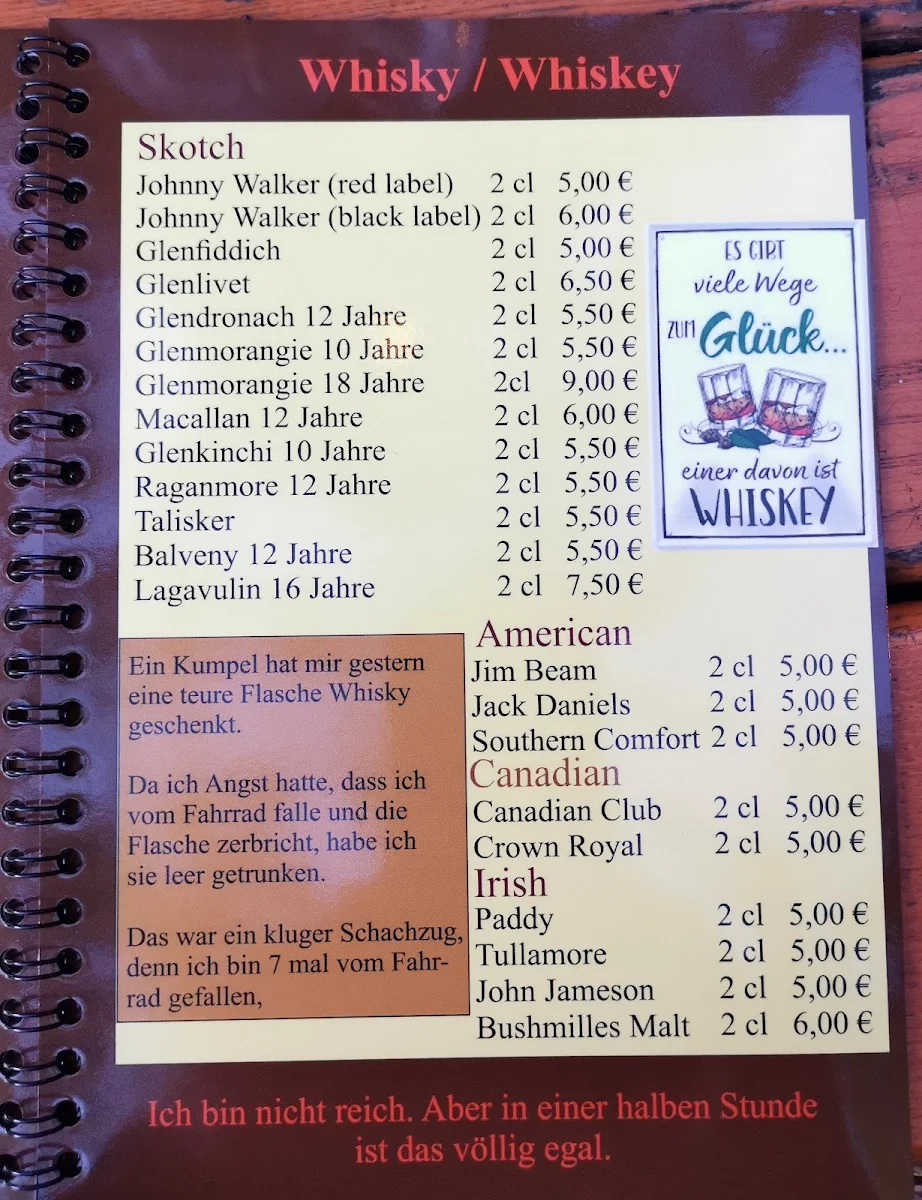 Whisky / Whiskey
Skotch
Johnny Walker (red label) 2 cl 5,00 €
Johnny Walker (black label) 2 cl 6,00 €
Glenfiddich 2 cl 5,00 €
Glenlivet 2 cl 6,50 €
Glendronach 12 Jahre 2 cl 5,50 €
Glenmorangie 10 Jahre 2 cl 5,50 €
Glenmorangie 18 Jahre 2cl 9,00 €
Macallan 12 Jahre 2 cl 6,00 €
Glenkinchi 10 Jahre 2 cl 5,50 €
Raganmore 12 Jahre 2 cl 5,50 €
Talisker 2 cl 5,50 €
Balveny 12 Jahre 2 cl 5,50 €
Lagavulin 16 Jahre 2 cl 7,50 €
ES GIBT
viele Wege
ZUM Glück...
einer davon ist
WHISKEY
Ein Kumpel hat mir gestern
eine teure Flasche Whisky
geschenkt.
Da ich Angst hatte, dass ich
vom Fahrrad falle und die
Flasche zerbricht, habe ich
sie leer getrunken.
Das war ein kluger Schachzug,
denn ich bin 7 mal vom Fahr-
rad gefallen,
American
Jim Beam 2 cl 5,00 €
Jack Daniels 2 cl 5,00 €
Southern Comfort 2 cl 5,00 €
Canadian
Canadian Club 2 cl 5,00 €
Crown Royal 2 cl 5,00 €
Irish
Paddy 2 cl 5,00 €
Tullamore 2 cl 5,00 €
John Jameson 2 cl 5,00 €
Bushmilles Malt 2 cl 6,00 €
Ich bin nicht reich. Aber in einer halben Stunde
ist das völlig egal.